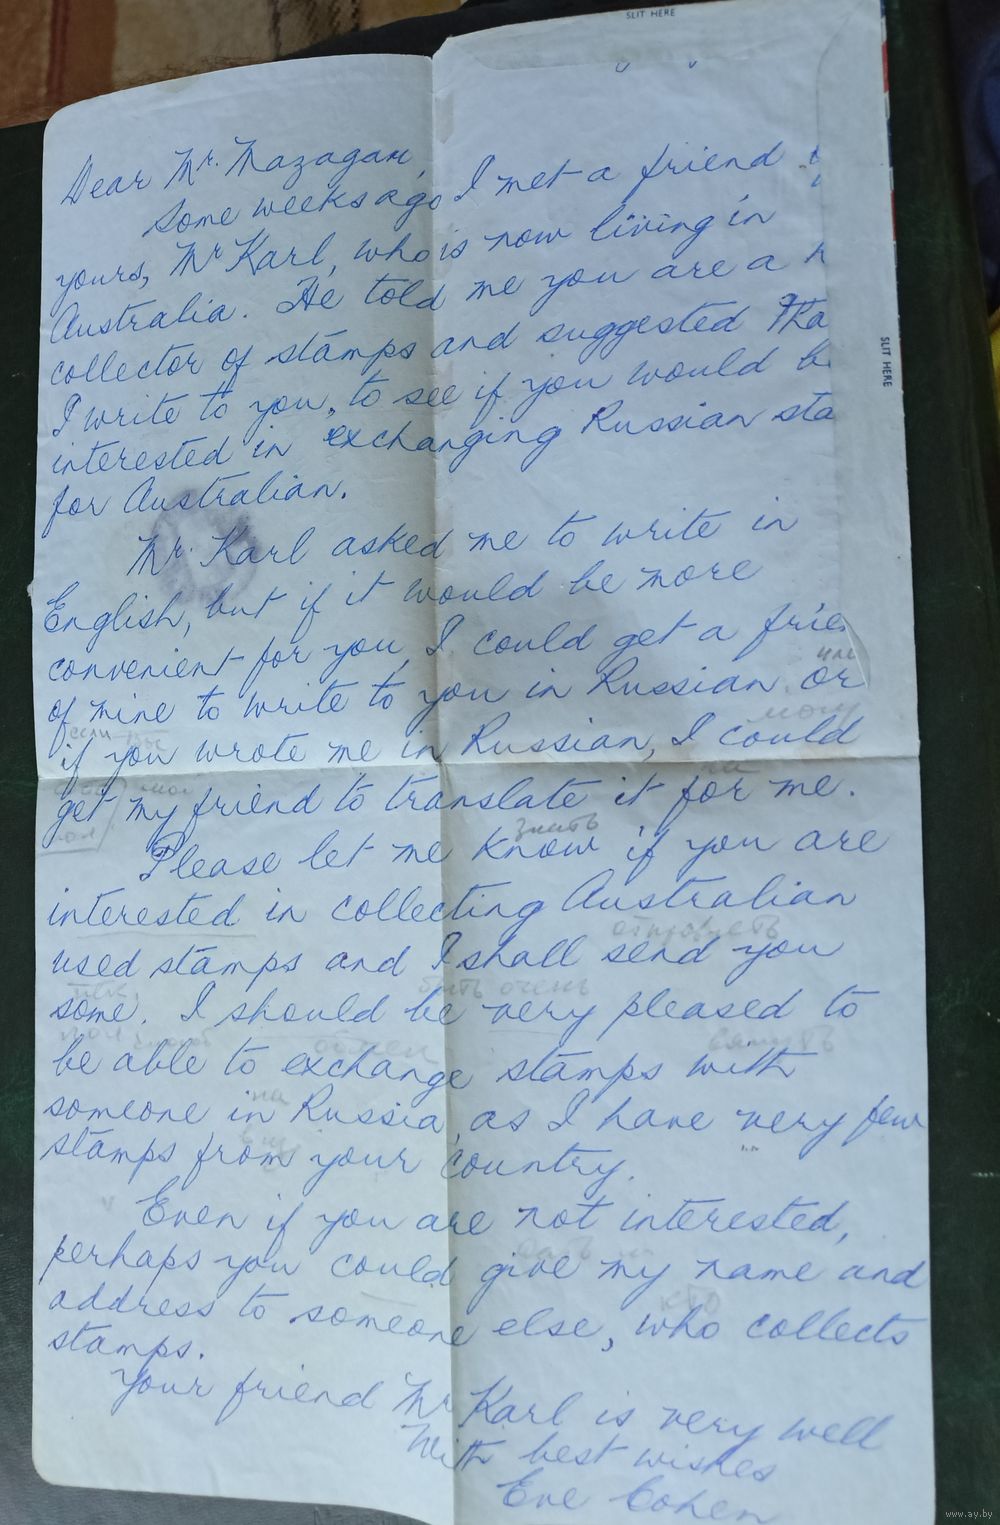 SLIT HERE
Dear Mr. Mazagan,
Some weeks ago I met a friend
yours, Mr Karl, who is now living in
Australia. He told me you are a
collector of stamps and suggested tha
I write to you, to see if you would b
interested in exchanging Russian sta
for Australian.
SLIT HERE
Mr. Karl asked me to write in
English, but if it would be more
convenient for you, I could get a frien
или
of mine to write to you in Russian, or
если Вы могу
if you wrote me in Russian, I could
get my friend to translate it for me.
знать
Please let me know if you are
interested in collecting Australian
used stamps and I shall send you
быть очень
some. I should be very pleased to
обмен
be able to exchange stamps with
на
someone in Russia, as I have very few
stamps from your country.
Even if you are not interested,
perhaps you could give my name and
кто
address to someone else, who collects
stamps.
Your friend Mr Karl is very well
With best wishes
Eve Cohen
www.ay.by